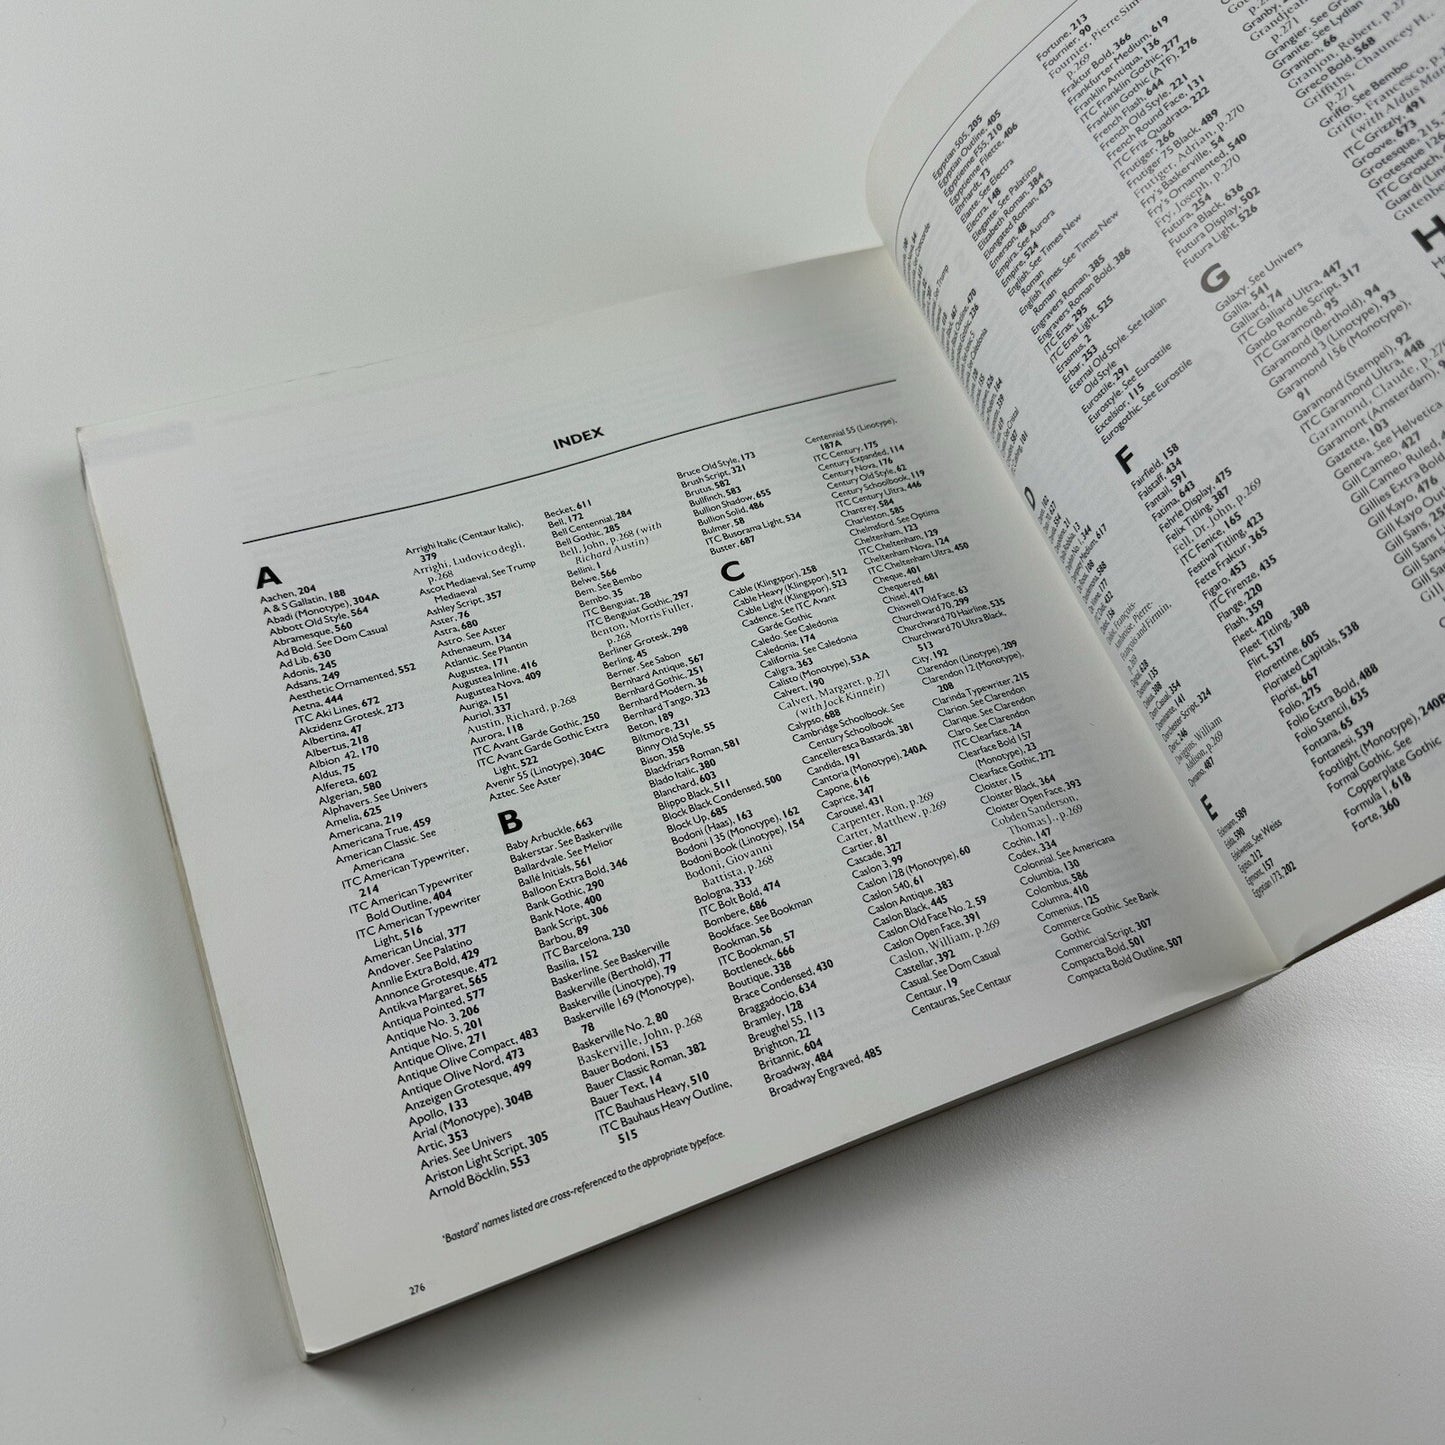 INDEX
A
Aachen, 204
A & S Gallatin, 188
Abadi (Monotype), 304A
Abbott Old Style, 564
Abramesque, 560
Ad Bold. See Dom Casual
Ad Lib, 630
Adonis, 245
Adsans, 249
Aesthetic Ornamented, 552
Aetna, 444
ITC Aki Lines, 672
Akzidenz Grotesk, 273
Albertina, 47
Albertus, 218
Albion 42, 170
Aldus, 75
Alfereta, 602
Algerian, 580
Alphavers. See Univers
Amelia, 625
Americana, 219
Americana True, 459
American Classic. See
Americana
ITC American Typewriter,
214
ITC American Typewriter
Bold Outline, 404
ITC American Typewriter
Light, 516
American Uncial, 377
Andover. See Palatino
Annlie Extra Bold, 429
Annonce Grotesque, 472
Antikva Margaret, 565
Antiqua Pointed, 577
Antique No. 3, 206
Antique No. 5, 201
Antique Olive, 271
Antique Olive Compact, 483
Antique Olive Nord, 473
Anzeigen Grotesque, 499
Apollo, 133
Arial (Monotype), 304B
Artic, 353
Aries. See Univers
Ariston Light Script, 305
Arnold Böcklin, 553
Arrighi Italic (Centaur Italic),
379
Arrighi, Ludovico degli,
p.268
Ascot Mediaeval, See Trump
Mediaeval
Ashley Script, 357
Aster, 76
Astra, 680
Astro. See Aster
Athenaeum, 134
Atlantic. See Plantin
Augustea, 171
Augustea Inline, 416
Augustea Nova, 409
Auriga, 151
Auriol, 337
Austin, Richard, p.268
Aurora, 118
ITC Avant Garde Gothic, 250
ITC Avant Garde Gothic Extra
Light, 522
Avenir 55 (Linotype), 304C
Aztec. See Aster
B
Baby Arbuckle, 663
Bakerstar. See Baskerville
Ballardvale. See Melior
Ballé Initials, 561
Balloon Extra Bold, 346
Bank Gothic, 290
Bank Note, 400
Bank Script, 306
Barbou, 89
ITC Barcelona, 230
Basilia, 152
Baskerline. See Baskerville
Baskerville (Berthold), 77
Baskerville (Linotype), 79
Baskerville 169 (Monotype),
78
Baskerville No. 2, 80
Baskerville, John, p.268
Bauer Bodoni, 153
Bauer Classic Roman, 382
Bauer Text, 14
ITC Bauhaus Heavy, 510
ITC Bauhaus Heavy Outline,
515
Becket, 611
Bell, 172
Bell Centennial, 284
Bell Gothic, 285
Bell, John, p.268 (with
Richard Austin)
Bellini, 1
Belwe, 566
Bem. See Bembo
Bembo, 35
ITC Benguiat, 28
ITC Benguiat Gothic, 297
Benton, Morris Fuller,
p.268
Berliner Grotesk, 298
Berling, 45
Berner. See Sabon
Bernhard Antique, 567
Bernhard Gothic, 251
Bernhard Modern, 36
Bernhard Tango, 323
Beton, 189
Biltmore, 231
Binny Old Style, 55
Bison, 358
Blackfriars Roman, 581
Blado Italic, 380
Blanchard, 603
Blippo Black, 511
Block Black Condensed, 500
Block Up, 685
Bodoni (Haas), 163
Bodoni 135 (Monotype), 162
Bodoni Book (Linotype), 154
Bodoni, Giovanni
Battista, p.268
Bologna, 333
ITC Bolt Bold, 474
Bombere, 686
Bookface. See Bookman
Bookman, 56
ITC Bookman, 57
Bottleneck, 666
Boutique, 338
Brace Condensed, 430
Braggadocio, 634
Bramley, 128
Breughel 55, 113
Brighton, 22
Britannic, 604
Broadway, 484
Broadway Engraved, 485
Bruce Old Style, 173
Brush Script, 321
Brutus, 582
Bullfinch, 583
Bullion Shadow, 655
Bullion Solid, 486
Bulmer, 58
ITC Busorama Light, 534
Buster, 687
C
Cable (Klingspor), 258
Cable Heavy (Klingspor), 512
Cable Light (Klingspor), 523
Cadence. See ITC Avant
Garde Gothic
Caledo. See Caledonia
Caledonia, 174
California. See Caledonia
Caligra, 363
Calisto (Monotype), 53A
Calvert, 190
Calvert, Margaret, p.271
(with Jock Kinneir)
Calypso, 688
Cambridge Schoolbook. See
Century Schoolbook
Cancelleresca Bastarda, 381
Candida, 191
Cantoria (Monotype), 240A
Capone, 616
Caprice, 347
Carousel, 431
Carpenter, Ron, p.269
Carter, Matthew, p.269
Cartier, 81
Cascade, 327
Caslon 3, 99
Caslon 128 (Monotype), 60
Caslon 540, 61
Caslon Antique, 383
Caslon Black, 445
Caslon Old Face No. 2, 59
Caslon Open Face, 391
Caslon, William, p.269
Castellar, 392
Casual. See Dom Casual
Centaur, 19
Centauras, See Centaur
Centennial 55 (Linotype),
187A
ITC Century, 175
Century Expanded, 114
Century Nova, 176
Century Old Style, 62
Century Schoolbook, 119
ITC Century Ultra, 446
Chantrey, 584
Charleston, 585
Chelmsford. See Optima
Cheltenham, 123
ITC Cheltenham, 129
Cheltenham Nova, 124
ITC Cheltenham Ultra, 450
Cheque, 401
Chequered, 681
Chisel, 417
Chiswell Old Face, 63
Churchward 70, 299
Churchward 70 Hairline, 535
Churchward 70 Ultra Black,
513
City, 192
Clarendon (Linotype), 209
Clarendon 12 (Monotype),
208
Clarinda Typewriter, 215
Clarion. See Clarendon
Clarique. See Clarendon
Claro. See Clarendon
ITC Clearface, 24
Clearface Bold 157
(Monotype), 23
Clearface Gothic, 272
Cloister, 15
Cloister Black, 364
Cloister Open Face, 393
Cobden Sanderson,
Thomas J., p.269
Cochin, 147
Codex, 334
Colonial. See Americana
Columbia, 130
Columbus, 586
Columna, 410
Comenius, 125
Commerce Gothic. See Bank
Gothic
Commercial Script, 307
Compacta Bold, 501
Compacta Bold Outline, 507
'Bastard' names listed are cross-referenced to the appropriate typeface.
276
D
E
Egyptian 505, 205
Egyptian Outline, 405
Egyptienne F55, 210
Egyptienne Filette, 406
Ehrhardt, 73
Elante. See Electra
Electra, 148
Elegante. See Palatino
Elizabeth Roman, 384
Elongated Roman, 433
Emerson, 48
Empira. See Aurora
Empire, 524
English. See Times New
Roman
English Times. See Times New
Roman
Engravers Roman, 385
Engravers Roman Bold, 386
ITC Eras, 295
ITC Eras Light, 525
Erasmus, 2
Erbar, 253
Eternal Old Style. See Italian
Old Style
Eurostile, 291
Eurostyle. See Eurostile
Excelsior, 115
Eurogothic. See Eurostile
F
Fairfield, 158
Falstaff, 434
Fantail, 591
Fatima, 643
Fehrle Display, 475
Felix Titling, 387
Fell, Dr. John, p.269
ITC Fenice, 165
Festival Titling, 423
Fette Fraktur, 365
Figaro, 453
ITC Firenze, 435
Flange, 220
Flash, 359
Fleet, 420
Fleet Titling, 388
Flirt, 537
Florentine, 605
Floriated Capitals, 538
Florist, 667
Folio, 275
Folio Extra Bold, 488
Folio Stencil, 635
Fontana, 65
Fontanesi, 539
Footlight (Monotype), 240B
Formal Gothic. See
Copperplate Gothic
Formula 1, 618
Forte, 360
Fortune, 213
Fournier, 90
Fournier, Pierre Sim
p.269
Fraktur Bold, 366
Frankfurter Medium, 619
Franklin Antiqua, 136
ITC Franklin Gothic, 277
Franklin Gothic (ATF), 276
French Flash, 644
French Old Style, 221
French Round Face, 131
ITC Friz Quadrata, 222
Frutiger, 266
Frutiger 75 Black, 489
Frutiger, Adrian, p.270
Fry's Baskerville, 54
Fry's Ornamented, 540
Fry, Joseph, p.270
Futura, 254
Futura Black, 636
Futura Display, 502
Futura Light, 526
G
Galaxy. See Univers
Gallia, 541
Galliard, 74
ITC Galliard Ultra, 447
Gando Ronde Script, 317
ITC Garamond, 95
Garamond (Berthold), 94
Garamond 3 (Linotype), 93
Garamond 156 (Monotype),
91
Garamond (Stempel), 92
ITC Garamond Ultra, 448
Garamond, Claude, p.270
Garamont (Amsterdam),
Gazette, 103
Geneva. See Helvetica
Gill Cameo, 427
Gill Cameo Ruled,
Gillies Extra Bold,
Gill Kayo, 476
Gill Kayo Out
Gill Sans, 25
Gill Sans
Gill Sans
Granby,
Grandjean
p.271
Grangier. See Gr
Granite. See Lydian
Granjon, 66
Granjon, Robert, p.27
Greco Bold, 568
Griffiths, Chauncey H.,
p.271
Griffo. See Bembo
Griffo, Francesco, p.
(with Aldus Man
ITC Grizzly, 491
Groove, 673
Grotesque, 215,
Grotesque 126
ITC Grouch,
Guardi (Lin
Gutenber
H